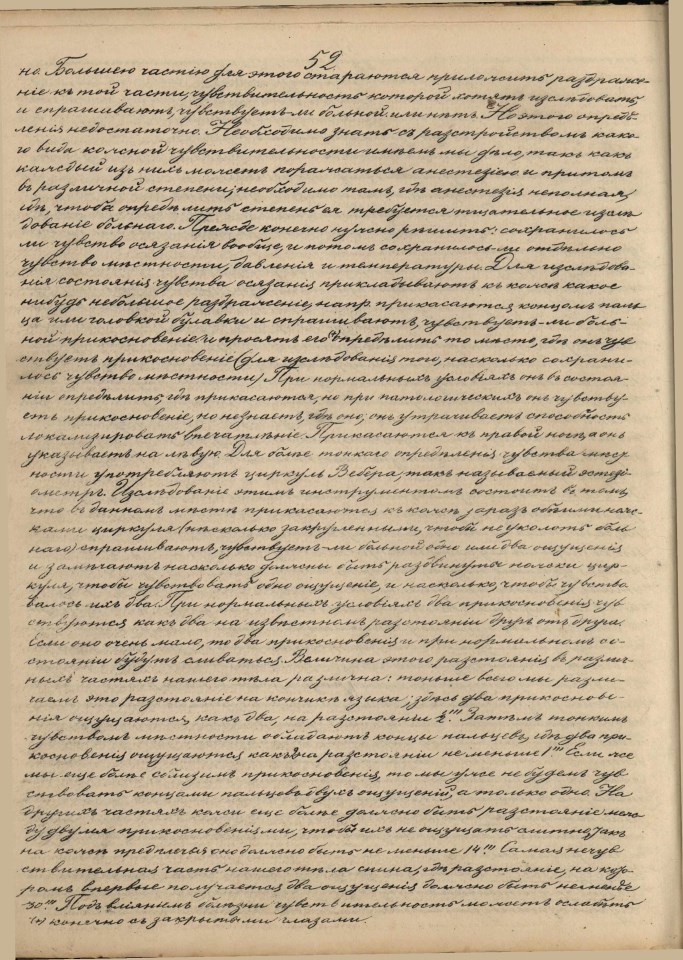 52
на Большею частію для этого стараются приложить раздраже-
ніе къ той части, чувствительность которой хотятъ изслѣдовать
и спрашиваютъ, чувствуетъ-ли больной или нѣтъ. Но этого опредѣ-
ленія недостаточно. Необходимо знать съ разстройствомъ како-
го вида кожной чувствительности имѣемъ мы дѣло, такъ какъ
каждый изъ нихъ можетъ поражаться анестезіею и притомъ
въ различной степени; необходимо тамъ, гдѣ анестезія неполная,
гдѣ, чтобы опредѣлить степень ея требуется тщательное изслѣ-
дованіе больнаго. Прежде конечно нужно рѣшить: сохранилось
ли чувство осязанія вообще, и потомъ сохранилось-ли отдѣльно
чувство мѣстности, давленія и температуры. Для изслѣдова-
нія состоянія чувства осязанія прикладываютъ къ кожѣ какое
нибудь небольшое раздраженіе, напр. прикасаются концомъ паль-
ца или головкой булавки и спрашиваютъ, чувствуетъ-ли боль-
ной прикосновеніе и просятъ его опредѣлить то мѣсто, гдѣ онъ чув
ствуетъ прикосновеніе (для изслѣдованія того, насколько сохрани-
лось чувство мѣстности) При нормальныхъ условіяхъ онъ въ состоя-
ніи опредѣлить, гдѣ прикасаются, но при патологическихъ онъ чувству-
етъ прикосновеніе, но не знаетъ, гдѣ оно; онъ утрачиваетъ способность
локализировать впечатлѣніе. Прикасаются къ правой ногѣ, а онъ
указываетъ на лѣвую. Для болѣе тонкаго опредѣленія чувства мѣст
ности употребляютъ циркуль Вебера, такъ называемый эстезі-
ометръ. Изслѣдованіе этимъ инструментомъ состоитъ въ томъ,
что въ данномъ мѣстѣ прикасаются къ кожѣ заразъ обѣими нож-
ками циркуля (нѣсколько закругленными, чтобы не уколоть боль
наго) спрашиваютъ, чувствуетъ-ли больной одно или два ощущенія
и замѣчаютъ насколько должны быть раздвинуты ножки цир-
куля, чтобы чувствовать одно ощущеніе, и насколько, чтобы чувство
валось ихъ два. При нормальныхъ условіяхъ два прикосновенія чув
ствуются какъ два на извѣстномъ разстояніи другъ отъ друга.
Если оно очень мало, то два прикосновенія и при нормальномъ со-
стояніи будутъ сливаться. Величина этого разстоянія въ различ-
ныхъ частяхъ нашего тѣла различна: тоньше всего мы разли-
чаемъ это разстояніе на кончикѣ языка; здѣсь два прикоснове-
нія ощущаются, какъ два, на разстояніи ½'''. Затѣмъ тонкимъ
чувствомъ мѣстности обладаютъ концы пальцевъ, гдѣ два при-
косновенія ощущаются какъ 2 на разстояніи не меньше 1''' Если же
мы еще болѣе сблизимъ прикосновенія, то мы уже не будемъ чув
ствовать концами пальцевъ двухъ ощущеній, а только одно. На
другихъ частяхъ кожи еще болѣе должно быть разстояніе меж-
ду двумя прикосновеніями, чтобы ихъ не ощущать слитно, такъ
на кожѣ предплечья оно должно быть не меньше 14''' Самая нечув
ствительная часть нашего тѣла спина, гдѣ разстояніе, на кото-
ромъ впервые получается два ощущенія должно быть не менѣе
30''' Подъ вліяніемъ болѣзни чувствительность можетъ ослабѣть
конечно съ закрытыми глазами.